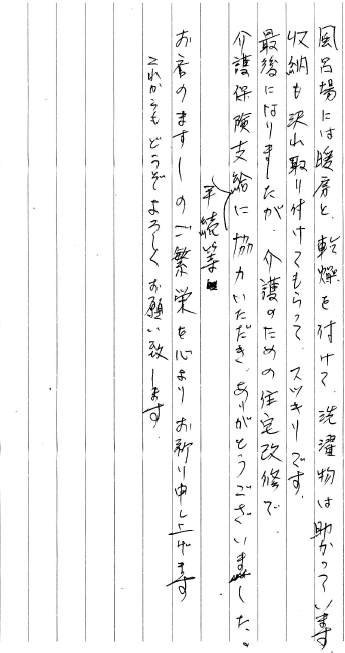 風呂場には暖房と、乾燥を付けて、洗濯物は助かっています。
収納も沢山取り付けてもらって、スッキリです。
最後になりましたが、介護のための住宅改修で
介護保険支給に協力いただき、ありがとうございました。
手続等
お店のますますのご繁栄を心よりお祈り申し上げます
これからもどうぞよろしくお願い致します。